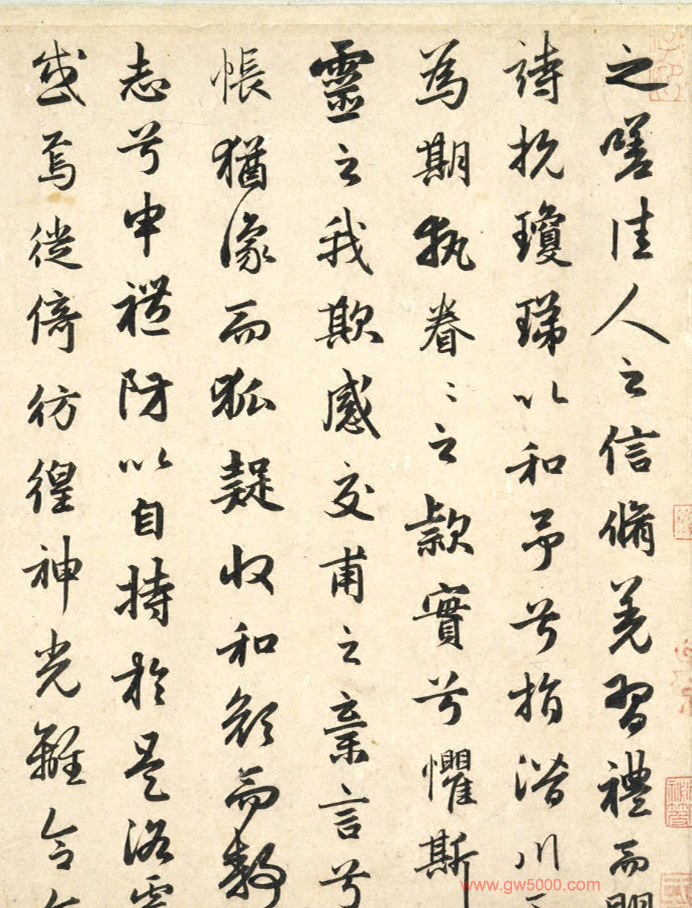 之嗟佳人之信脩羌習禮而明
詩抗瓊珶以和予兮指潛川
為期執眷〻之款實兮懼斯
靈之我欺感交甫之棄言兮
悵猶豫而狐疑收和顏而靜
志兮申禮防以自持於是洛靈
感焉徙倚彷徨神光離合
www.gw5000.com